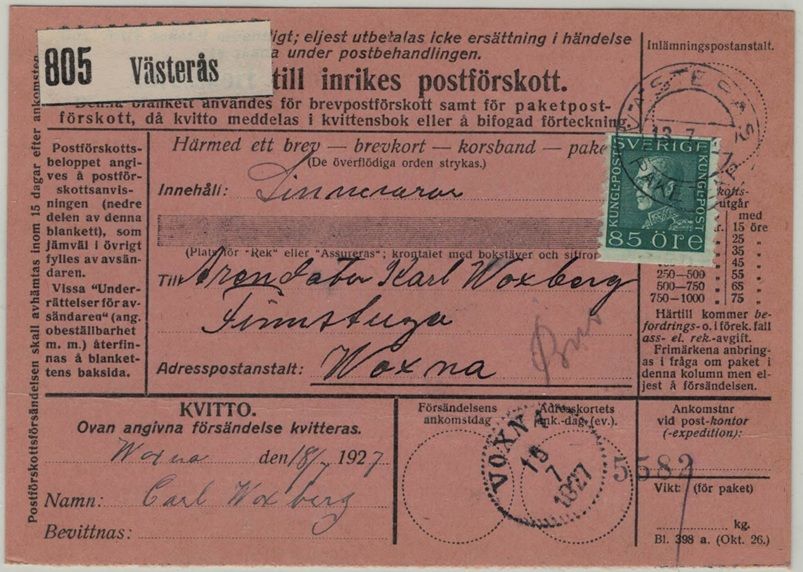 805 Västerås
igt; eljest utbetalas icke ersättning i händelse
a under postbehandlingen.
till inrikes postförskott.
Denna blankett användes för brevpostförskott samt för paketpost-
förskott, då kvitto meddelas i kvittensbok eller å bifogad förteckning.
Inlämningspostanstalt.
VÄSTERÅS
13 7
PAKET
Postförskottsförsändelsen skall avhämtas inom 15 dagar efter ankomsten
Postförskotts-
beloppet angi-
ves å postför-
skottsanvis-
ningen (nedre
delen av denna
blankett), som
jämväl i övrigt
fylles av avsän-
daren.
Vissa "Under-
rättelser för av-
sändaren" (ang.
obeställbarhet
m. m.) återfin-
nas å blanket-
tens baksida.
Härmed ett brev — brevkort — korsband — pake
(De överflödiga orden strykas.)
Innehåll: Linnevaror
(Plats för "Rek" eller "Assureras"; krontalet med bokstäver och siffror
Till Arendator Karl Woxberg
Finnstuga
Adresspostanstalt: Woxna
SVERIGE
KUNGL·POST
KUNGL·POST
85 ÖRE
kotts-
utgår
med
r. 15 öre
25 "
35 "
45 "
250—500 55 "
500—750 65 "
750—1000 75 "
Härtill kommer be-
fordrings- o. i förek. fall
ass- el. rek.-avgift.
Frimärkena anbring-
as i fråga om paket i
denna kolumn men el-
jest å försändelsen.
KVITTO.
Ovan angivna försändelse kvitteras.
Woxna den 18/7 1927
Namn: Carl Woxberg
Bevittnas:
Försändelsens
ankomstdag
Adresskortets
ank.-dag (ev.).
VOXNA
18
7
1927
Ankomstnr
vid post-kontor
(-expedition):
5582
Vikt: (för paket)
1
kg.
Bl. 398 a. (Okt. 26.)